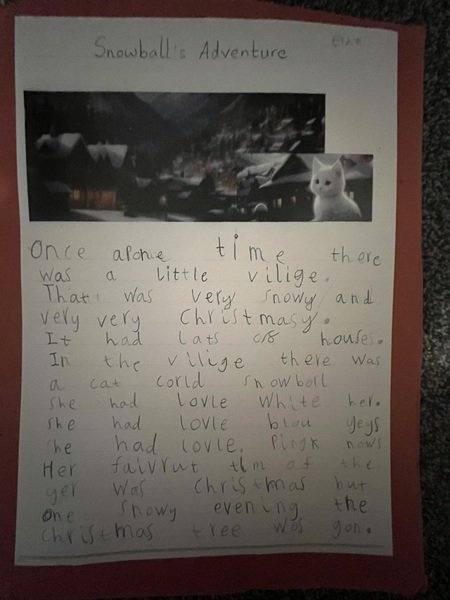 Snowball's Adventure
Once aponе time there
was a little vilige.
That was very snowy and
very very christmasy.
It had lats of houses.
In the vilige there was
a cat corld snowboll
she had lovle white her.
she had lovle blou yeys
she had lovle. Pingk nows
Her faivrut tim of the
yer was christmas but
one snowy evening the
christmas tree was gon.